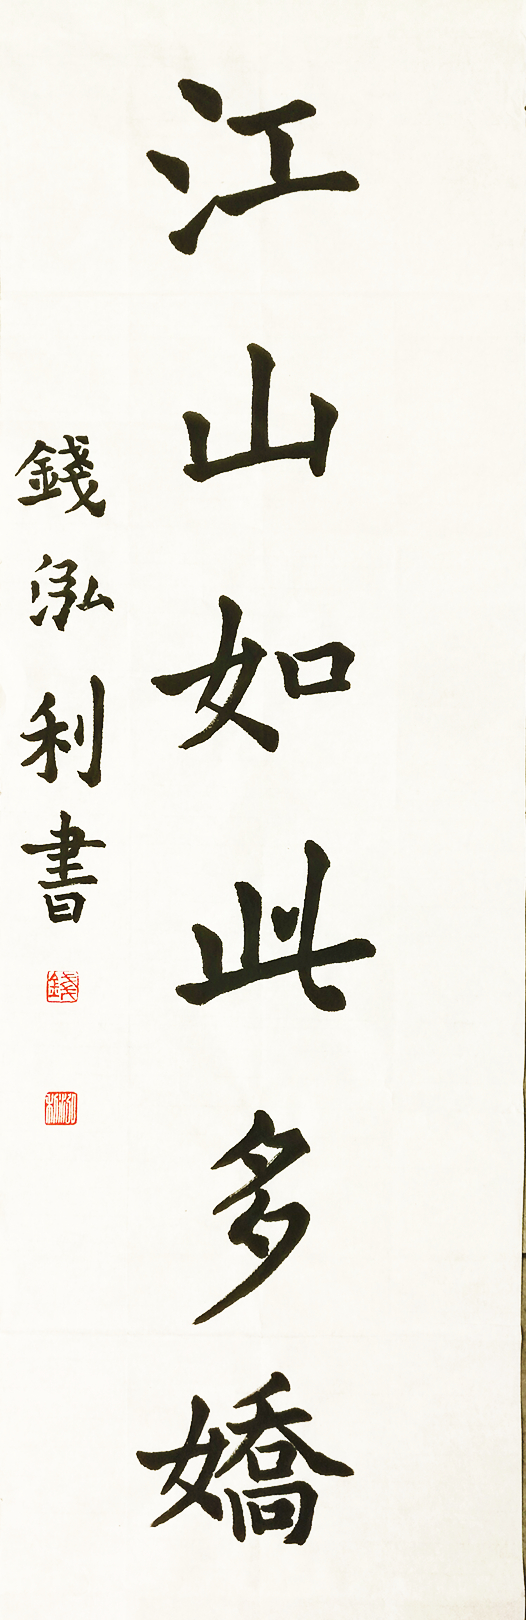 江山如此多嬌
錢泓利書
錢